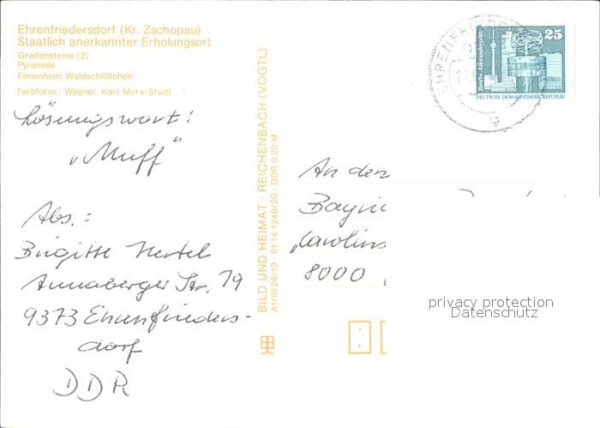 Ehrenfriedersdorf (Kr. Zschopau)
Staatlich anerkannter Erholungsort
Greifensteine (2)
Pyramide
Ferienheim Waldschlößchen
Farbfotos: Wagner, Karl-Marx-Stadt
Lösungswort:
"Muff"
Abs.:
Brigitte Hertel
Annaberger Str. 79
9373 Ehrenfrieders-
dorf
DDR
BILD UND HEIMAT · REICHENBACH (VOGTL)
A1/III/26/13 · 01 14 1248/20 · DDR 0,20 M
25
DEUTSCHE DEMOKRATISCHE REPUBLIK
An den
8000
privacy protection
Datenschutz